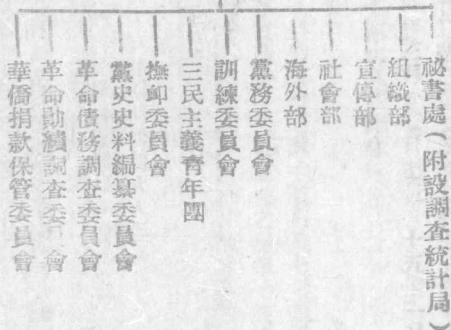 祕書處(附設調查統計局)
組織部
宣傳部
社會部
海外部
黨務委員會
訓練委員會
三民主義青年團
撫卹委員會
黨史史料編纂委員會
革命債務調查委員會
革命勛績調查委員會
華僑捐款保管委員會